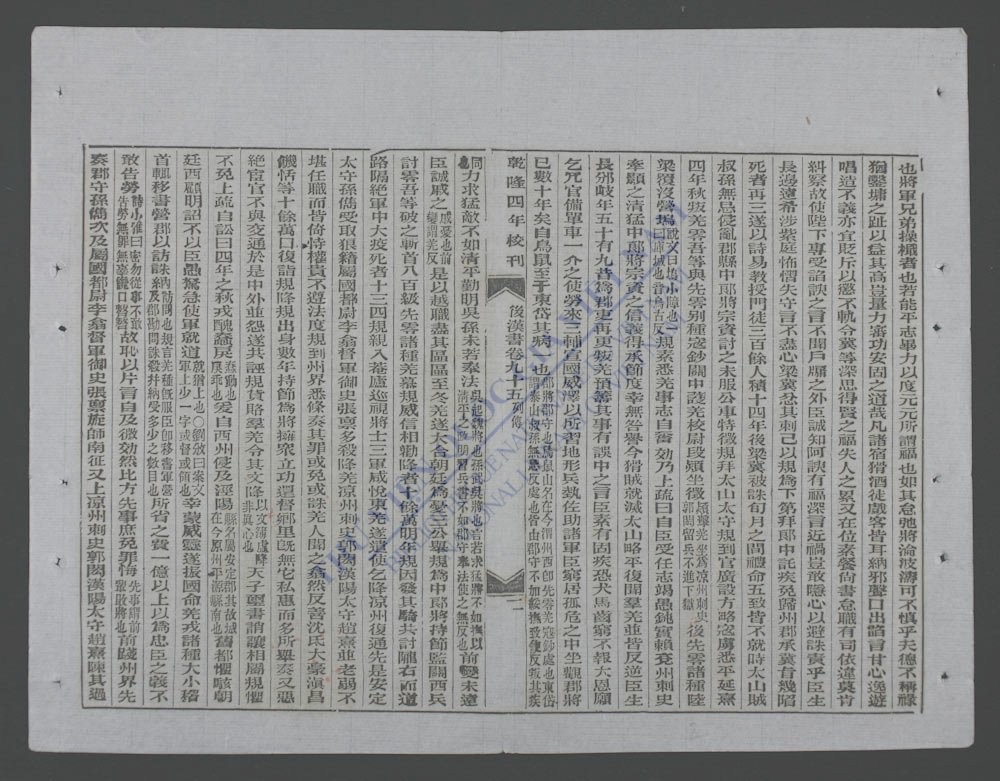 也將軍兄弟操檝者也若能平志畢力以度元元所謂福也如其怠弛將淪波濤可不慎乎夫德不稱祿
猶鑿墉之趾以益其高豈量力審功安固之道哉凡諸宿猾酒徒戲客皆耳納邪聲口出諂言甘心逸遊
唱造不義亦宜貶斥以懲不軌令冀等深思得賢之福失人之累又在位素餐尚書怠職有司依違莫肯
糾察故使陛下專受諂諛之言不聞戶牖之外臣誠知阿諛有福深言近禍豈敢隱心以避誅責乎臣生
長邊遠希涉紫庭怖慴失守言不盡心梁冀忿其刺己以規為下第拜郎中託疾免歸州郡承冀旨幾陷
死者再三遂以詩易教授門徒三百餘人積十四年後梁冀被誅旬月之間禮命五致皆不就時太山賊
叔孫無忌侵亂郡縣中郎將宗資討之未服公車特徵規拜太山太守規到官廣設方略寇虜悉平延熹
四年秋叛羌零吾等與先零別種寇鈔關中護羌校尉段熲坐徵熲擊羌坐為涼州刺史郭閎留兵不進下獄後先零諸種陸
梁覆沒營塢說文曰塢小障也一曰庳城也音烏古反規素悉羌事志自奮效乃上疏曰自臣受任志竭愚鈍實賴兗州刺史
牽顥之清猛中郎將宗資之信義得承節度幸無咎譽今猾賊就滅太山略平復聞羣羌並皆反逆臣生
長邠岐年五十有九昔為郡吏再更叛羌預籌其事有誤中之言臣素有固疾恐犬馬齒窮不報大恩願
乞冗官備單車一介之使勞來三輔宣國威澤以所習地形兵埶佐助諸軍臣窮居孤危之中坐觀郡將
已數十年矣自鳥鼠至于東岱其病一也郡將郡守也鳥鼠山名在今渭州西即先零羌寇鈔處也東岱謂泰山叔孫無忌反處也皆由郡守不加綏撫致使反叛其疾
乾隆四年校刊 後漢書卷九十五列傳 二
同也力求猛敵不如清平勤明吳孫未若奉法吳起魏將也孫武吳將也言若求猛將不如撫以清平之政明習兵書不如郡守奉法使之無反也前變未遠
臣誠戚之戚憂也前變謂羌反是以越職盡其區區至冬羌遂大合朝廷為憂三公舉規為中郎將持節監關西兵
討零吾等破之斬首八百級先零諸種羌慕規威信相勸降者十餘萬明年規因發其騎共討隴右而道
路隔絕軍中大疫死者十三四規親入菴廬巡視將士三軍感悅東羌遂遣使乞降涼州復通先是安定
太守孫儁受取狼籍屬國都尉李翕督軍御史張稟多殺降羌涼州刺史郭閎漢陽太守趙熹並老弱不
堪任職而皆倚恃權貴不遵法度規到州界悉條奏其罪或免或誅羌人聞之翕然反善沈氐大豪滇昌
飢恬等十餘萬口復詣規降規出身數年持節為將擁眾立功還督鄉里既無它私惠而多所舉奏又惡
絕宦官不與交通於是中外並怨遂共誣規貨賂羣羌令其文降以文簿虛降非真心也天子璽書誚讓相屬規懼
不免上疏自訟曰四年之秋戎醜蠢戾蠢動也戾乖也爰自西州侵及涇陽縣名屬安定郡其故城在今原州平涼縣南也舊都懼駭朝
廷西顧明詔不以臣愚駑急使軍就道就猶上也○劉攽曰案文軍上少一字或督或領也幸蒙威靈遂振國命羌戎諸種大小稽
首輒移書營郡以訪誅納訪問也規言羌種既服臣即移書軍營及郡勘問誅殺并納受多少之數目也所省之費一億以上以為忠臣之義不
敢告勞詩小雅曰密勿從事不敢告勞無罪無辜讒口嗸嗸故恥以片言自及微效然比方先事庶免罪悔先事謂前輩敗將也前踐州界先
奏郡守孫儁次及屬國都尉李翕督軍御史張稟旋師南征又上涼州刺史郭閎漢陽太守趙熹陳其過